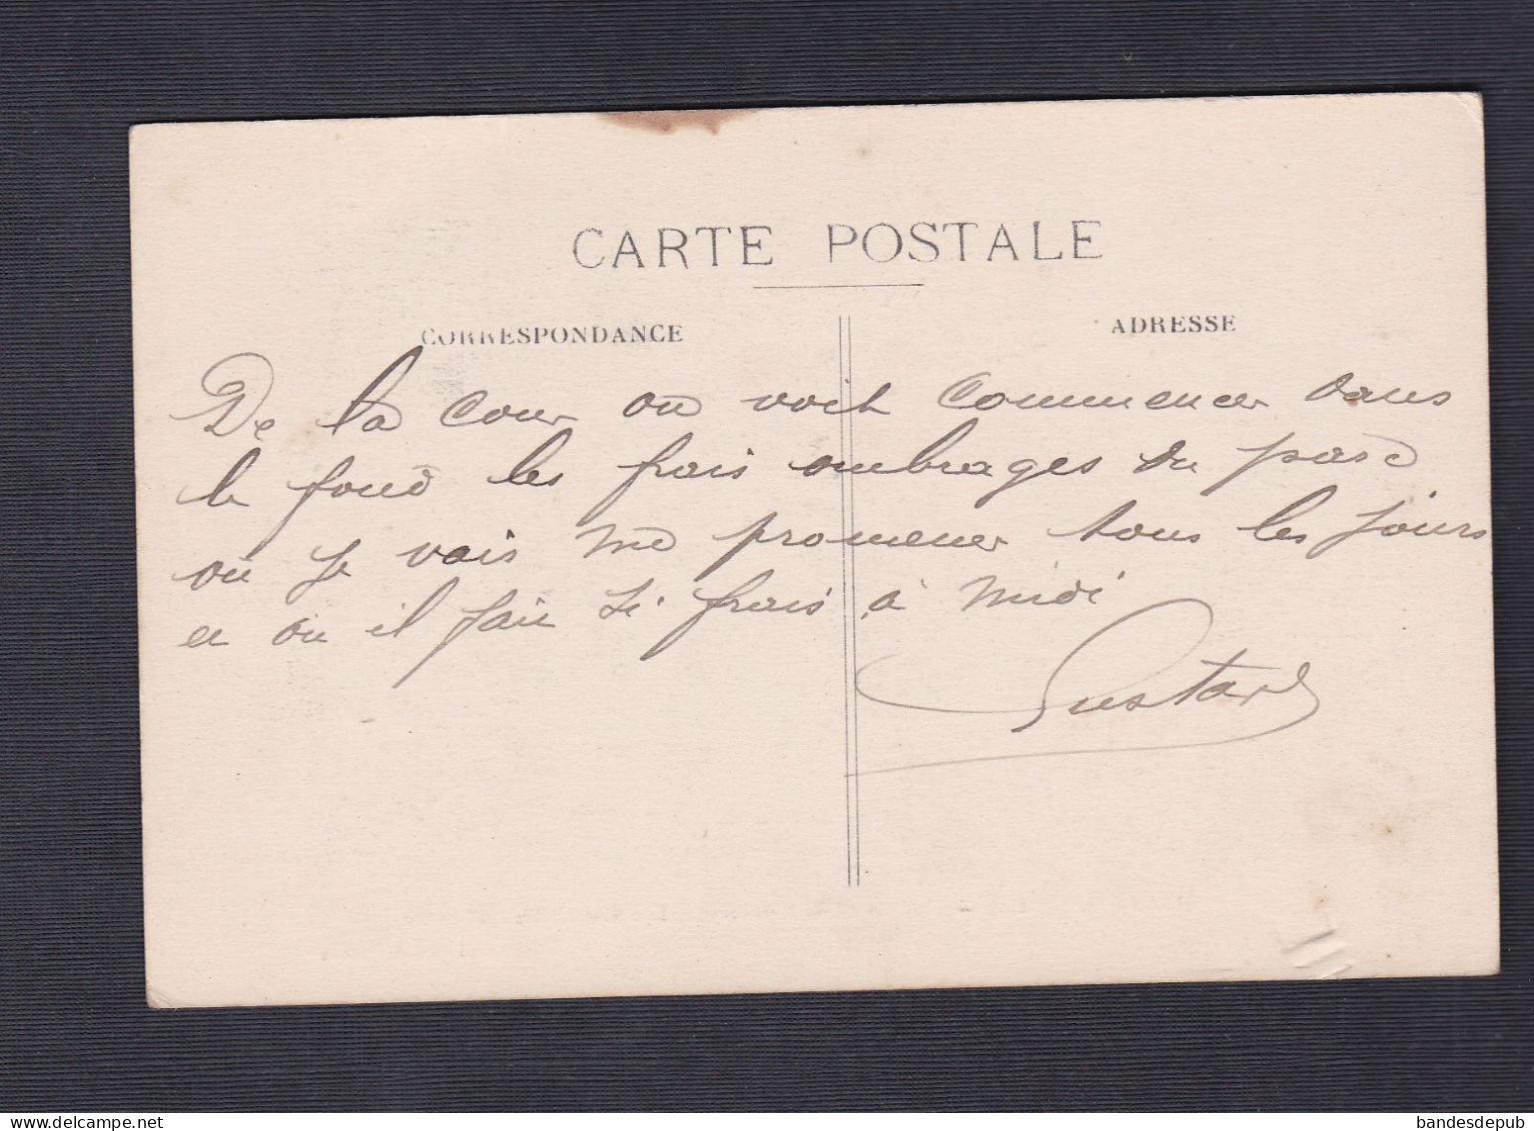 CARTE POSTALE
CORRESPONDANCE
ADRESSE
De la cour on voit commencer dans
le fond les frais ombrages du parc
où je vais me promener tous les jours
et où il fait si frais à midi
Gustave
Delcampe.net
bandesdepub